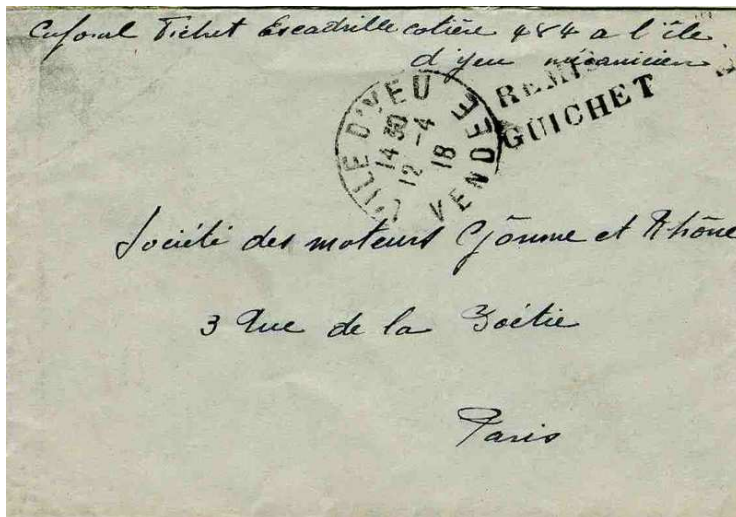 Caporal Tichet Escadrille cotière 484 a l'île
d'yeu mécanicien
REMIS
GUICHET
ILE D'YEU
14 30
12 -4
18
VENDEE
Société des moteurs Gnôme et Rhône
3 Rue de la Boétie
Paris